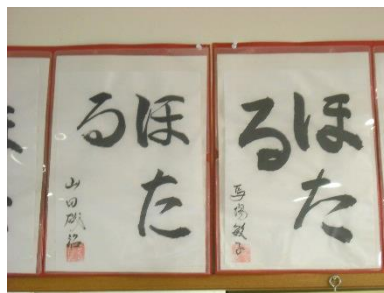 ほた
る
馬場敏子
ほた
る
山田